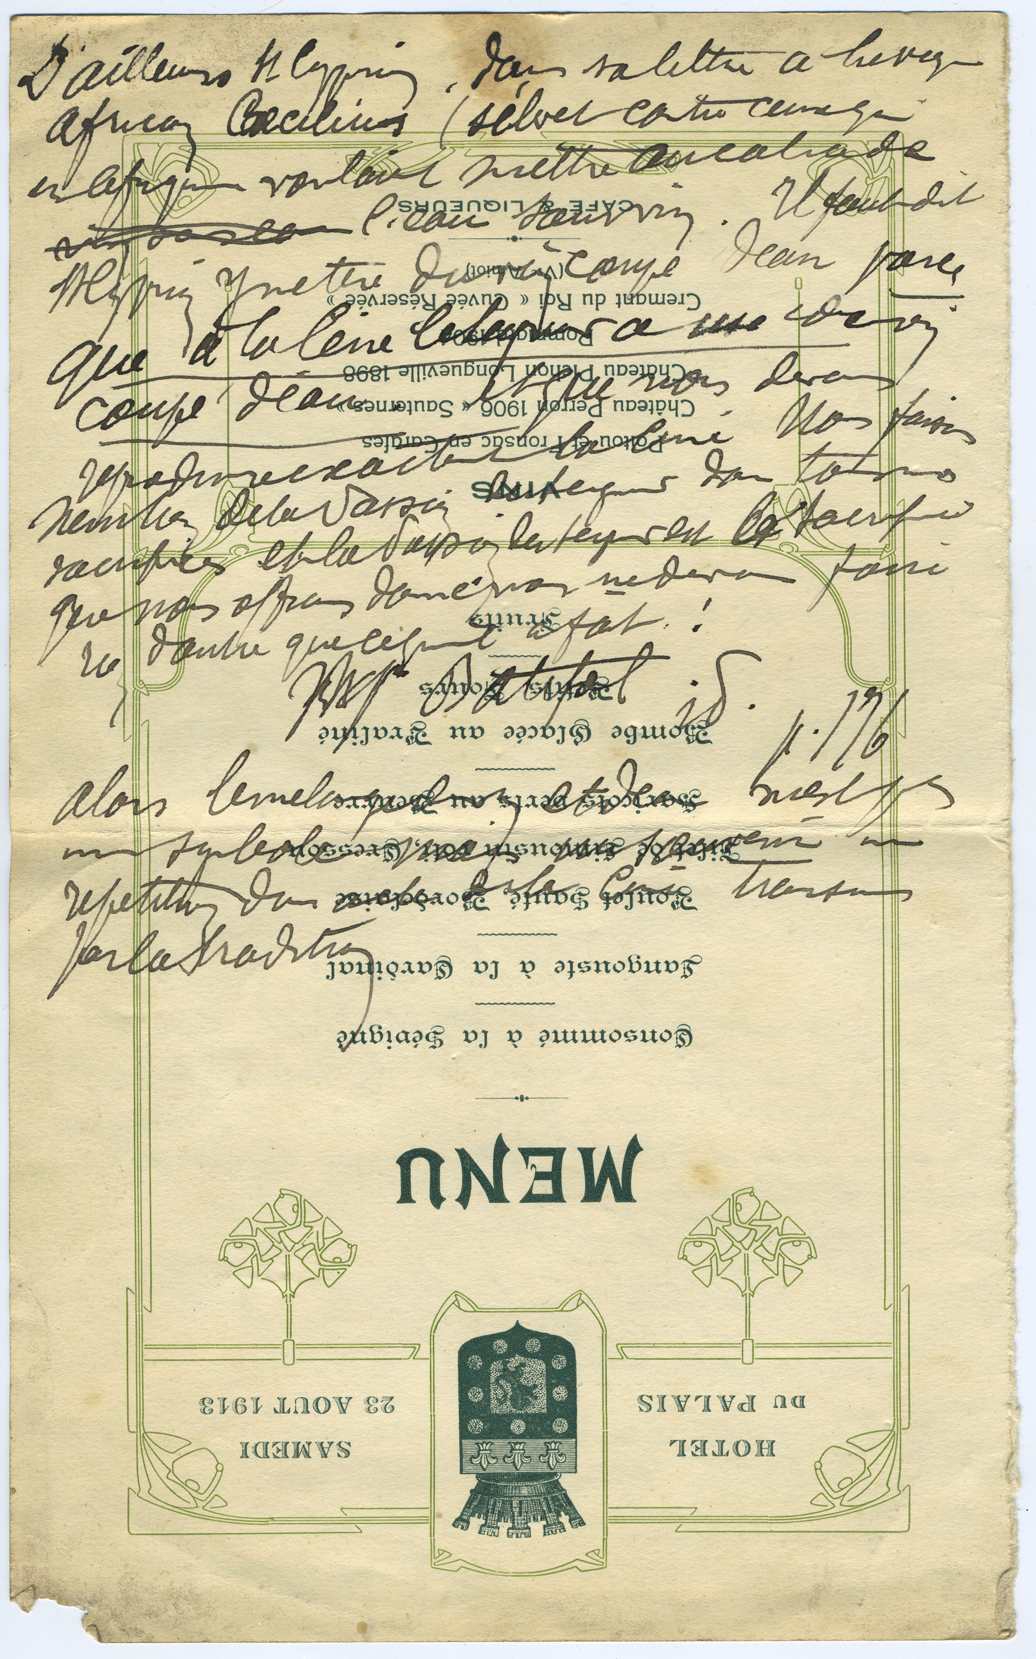 D'ailleurs St Cyprien, dans sa lettre a l'eveque
Africain Caecilius (s'élevet contre ceux qui
en Afrique voulait mettre au calice de
l'eau sans vin. Il faut dit
St Cyprien mettre du vin coupé d'eau parce
que à la Cène le Seigneur a use de vin
coupé d'eau et que nous devons
reproduire exactement la Cène. Nous faisons
mention de la Passion du Seigneur dans tous nos
sacrifices et la Passion du Seigneur est le sacrifice
que nous offrons donc nous ne devons faire
rien d'autre que ce qu'il a fait !
Mgr Batiffol id. p. 176
Alors le melange de vin et d'eau n'est pas
un symbole mais un souvenir une
repetition de la Cène transmis
par la Tradition
HOTEL
DU PALAIS
SAMEDI
23 AOUT 1913
MENU
Consommé à la Sévigné
Langouste à la Cardinal
Poulet Sauté, Bordelaise
Filet de Limousin rôti, Cresson
Haricots verts au Beurre
Bombe Glacée au Praliné
Petits Fours
Fruits
VINS
Poitou et Fronsac en Carafes
Château Perron 1906 « Sauternes »
Château Pichon Longueville 1898
Cremant du Roi « Cuvée Réservée »
(Vve Amiot)
CAFÉ & LIQUEURS